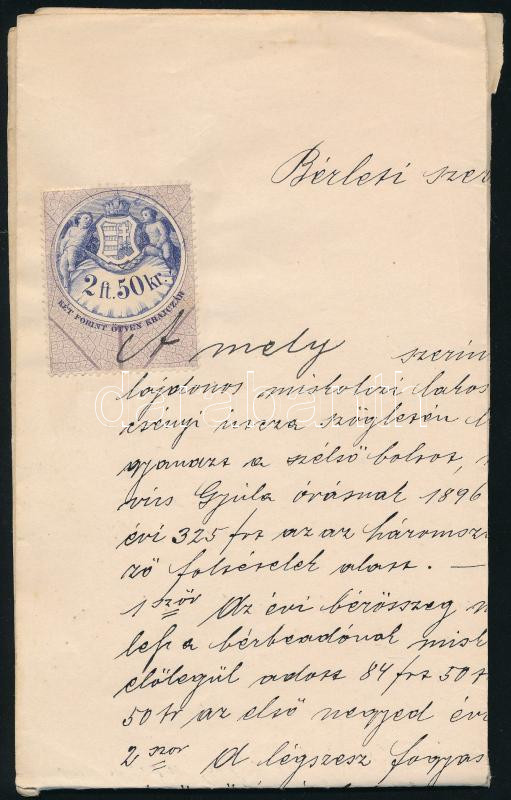 Bérleti szer
2 ft. 50 kr.
KÉT FORINT ÖTVEN KRAJCZÁR
A mely szerin
lajdonos miskolczi lakos
csenyi utcza szögletén l
gyanazt a szélső boltot,
Gyula órásnak 1896
évi 325 frt az az háromsz
ző feltételek alatt. —
1 ször Az évi bérösszeg
lep a bérbeadónak misk
előlegül adott 84 frt 50
50 kr az első negyed évi
2 szor A légszesz fogyas
darabanth